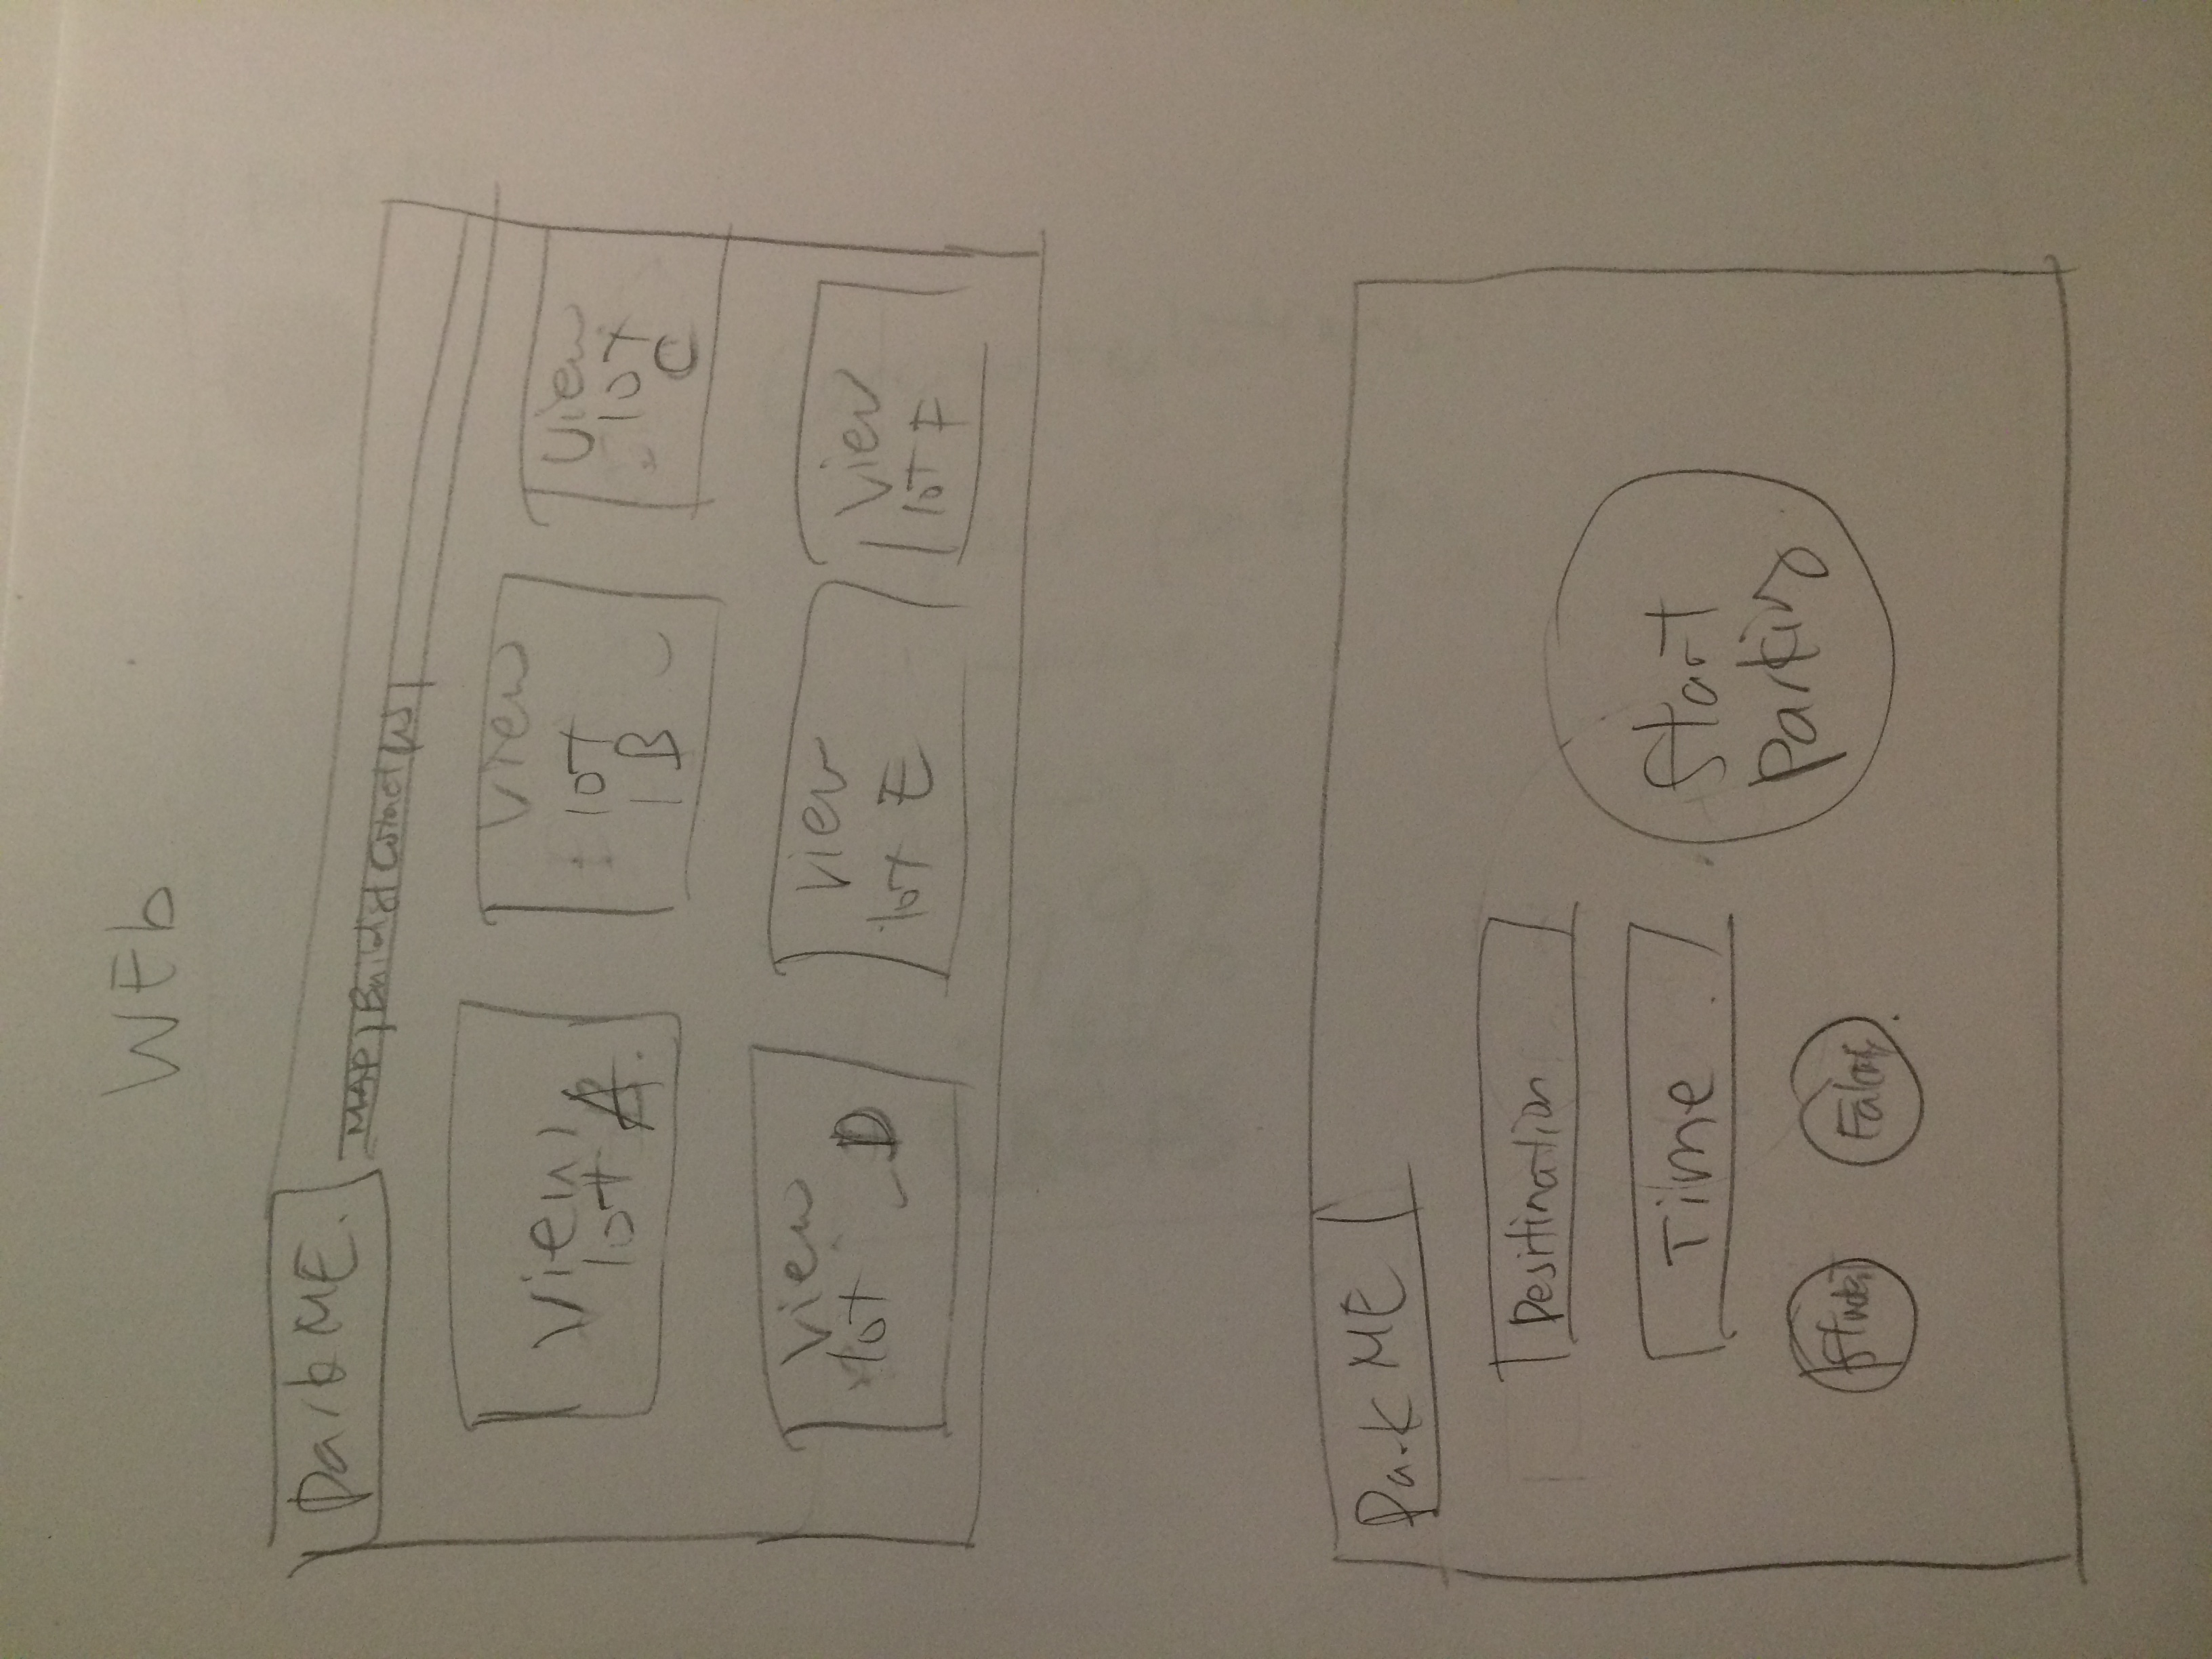 WEb
Park ME.
MAP | Buildg | Contact US |
View
lot A.
View
lot
B
View
lot
C
View
lot D
View
lot E
View
lot F
Park ME
Desitination
Time
Start
Parking
Student